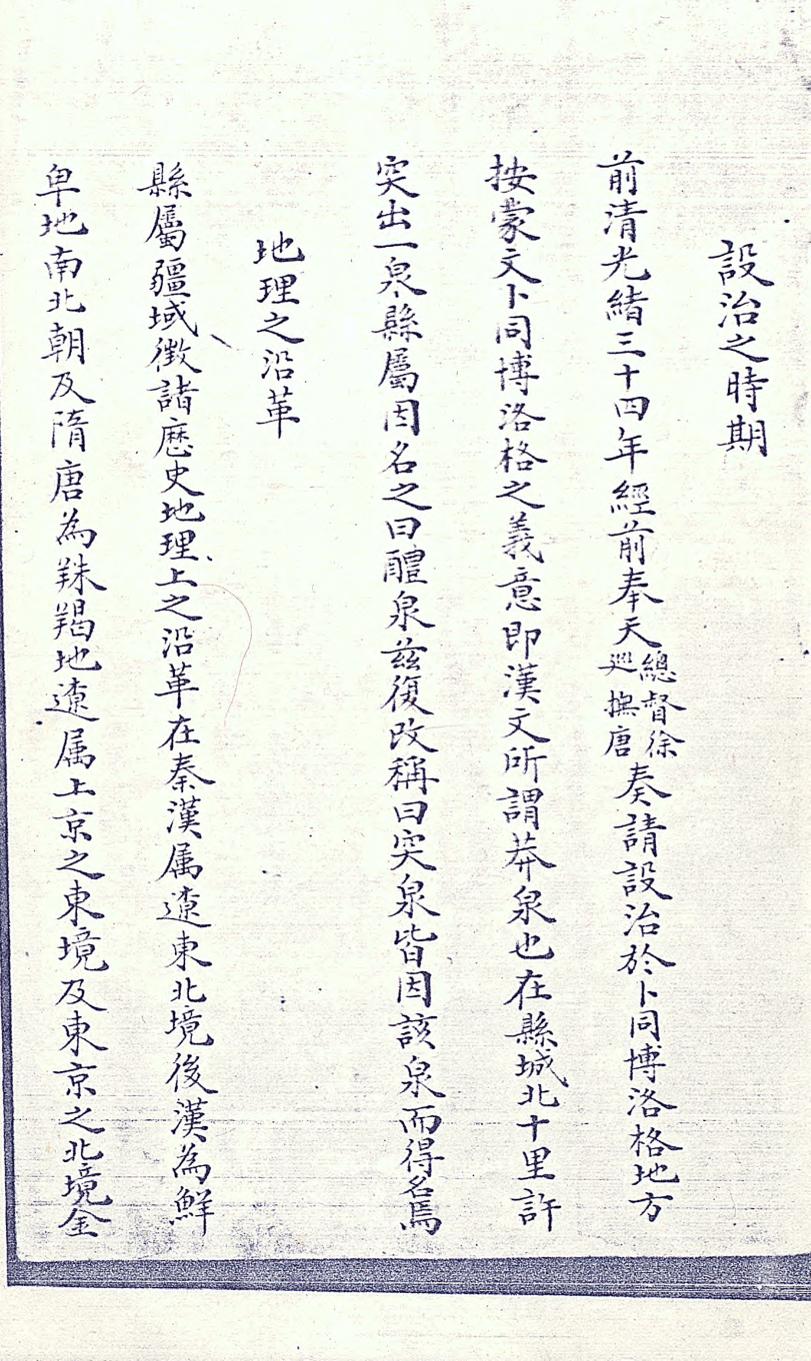 設治之時期
前清光緒三十四年經前奉天總督徐巡撫唐奏請設治於卜同博洛格地方
按蒙文卜同博洛格之義意即漢文所謂莽泉也在縣城北十里許
突出一泉縣屬因名之曰醴泉兹復改稱曰突泉皆因該泉而得名焉
地理之沿革
縣屬疆域徵諸歷史地理上之沿革在秦漢属遼東北境後漢為鮮
卑地南北朝及隋唐為靺鞨地遼属上京之東境及東京之北境金